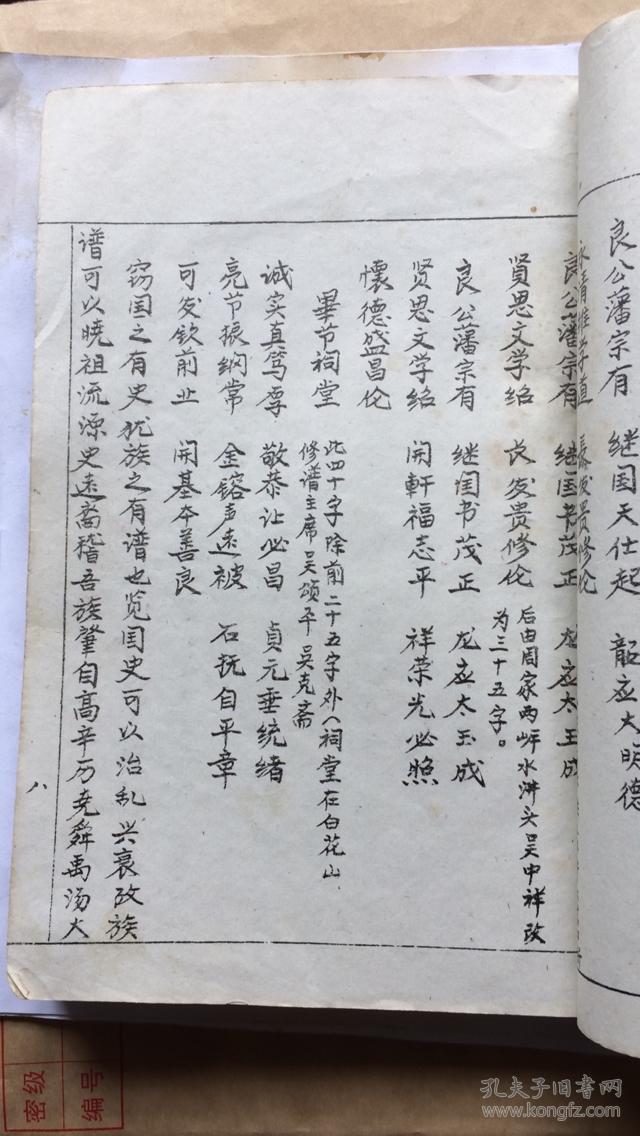 良公藩宗有 继国天仕起 韶应大明德
良公藩宗有 继国书茂正 龙应太玉成
贤思文学绍 长发贵修伦
后由周家两岍水淋头吴中祥改
为三十五字。
良公藩宗有 继国书茂正 龙应太玉成
贤思文学绍 開軒福志平 祥荣光必照
懷德盛昌伦
畢节祠堂
此四十字除前二十五字外(祠堂在白花山
修谱主席吴頌平吴克斋
诚实真笃厚 敬恭让必昌 貞元垂統绪
亮节振纲常 金镕声远被 石抚自平章
可发钦前业 開基本善良
窃国之有史犹族之有谱也览国史可以治乱兴衰改族
谱可以晓祖流源史远裔稽吾族肇自高辛历尧舜禹汤大
八
密级
编号
孔夫子旧书网
www.kongfz.com